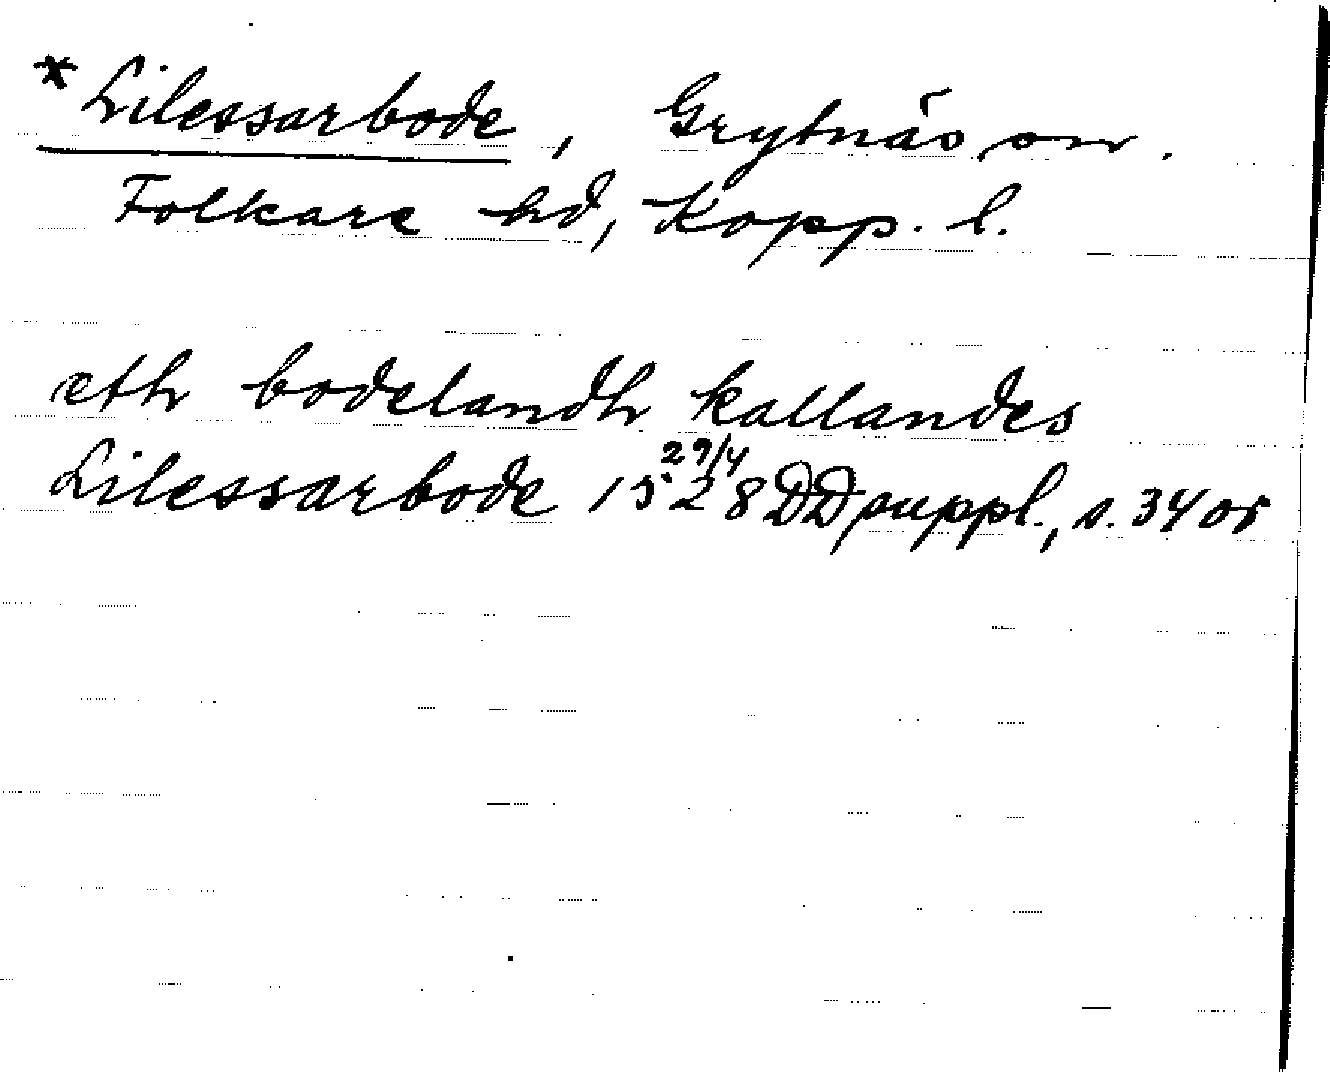 * Lilessarbode, Grytnäs sn.
Folkare hd, Kopp. l.
eth bodelandh kallandes
Lilessarbode 29/4 1528 DD suppl., s. 34 or